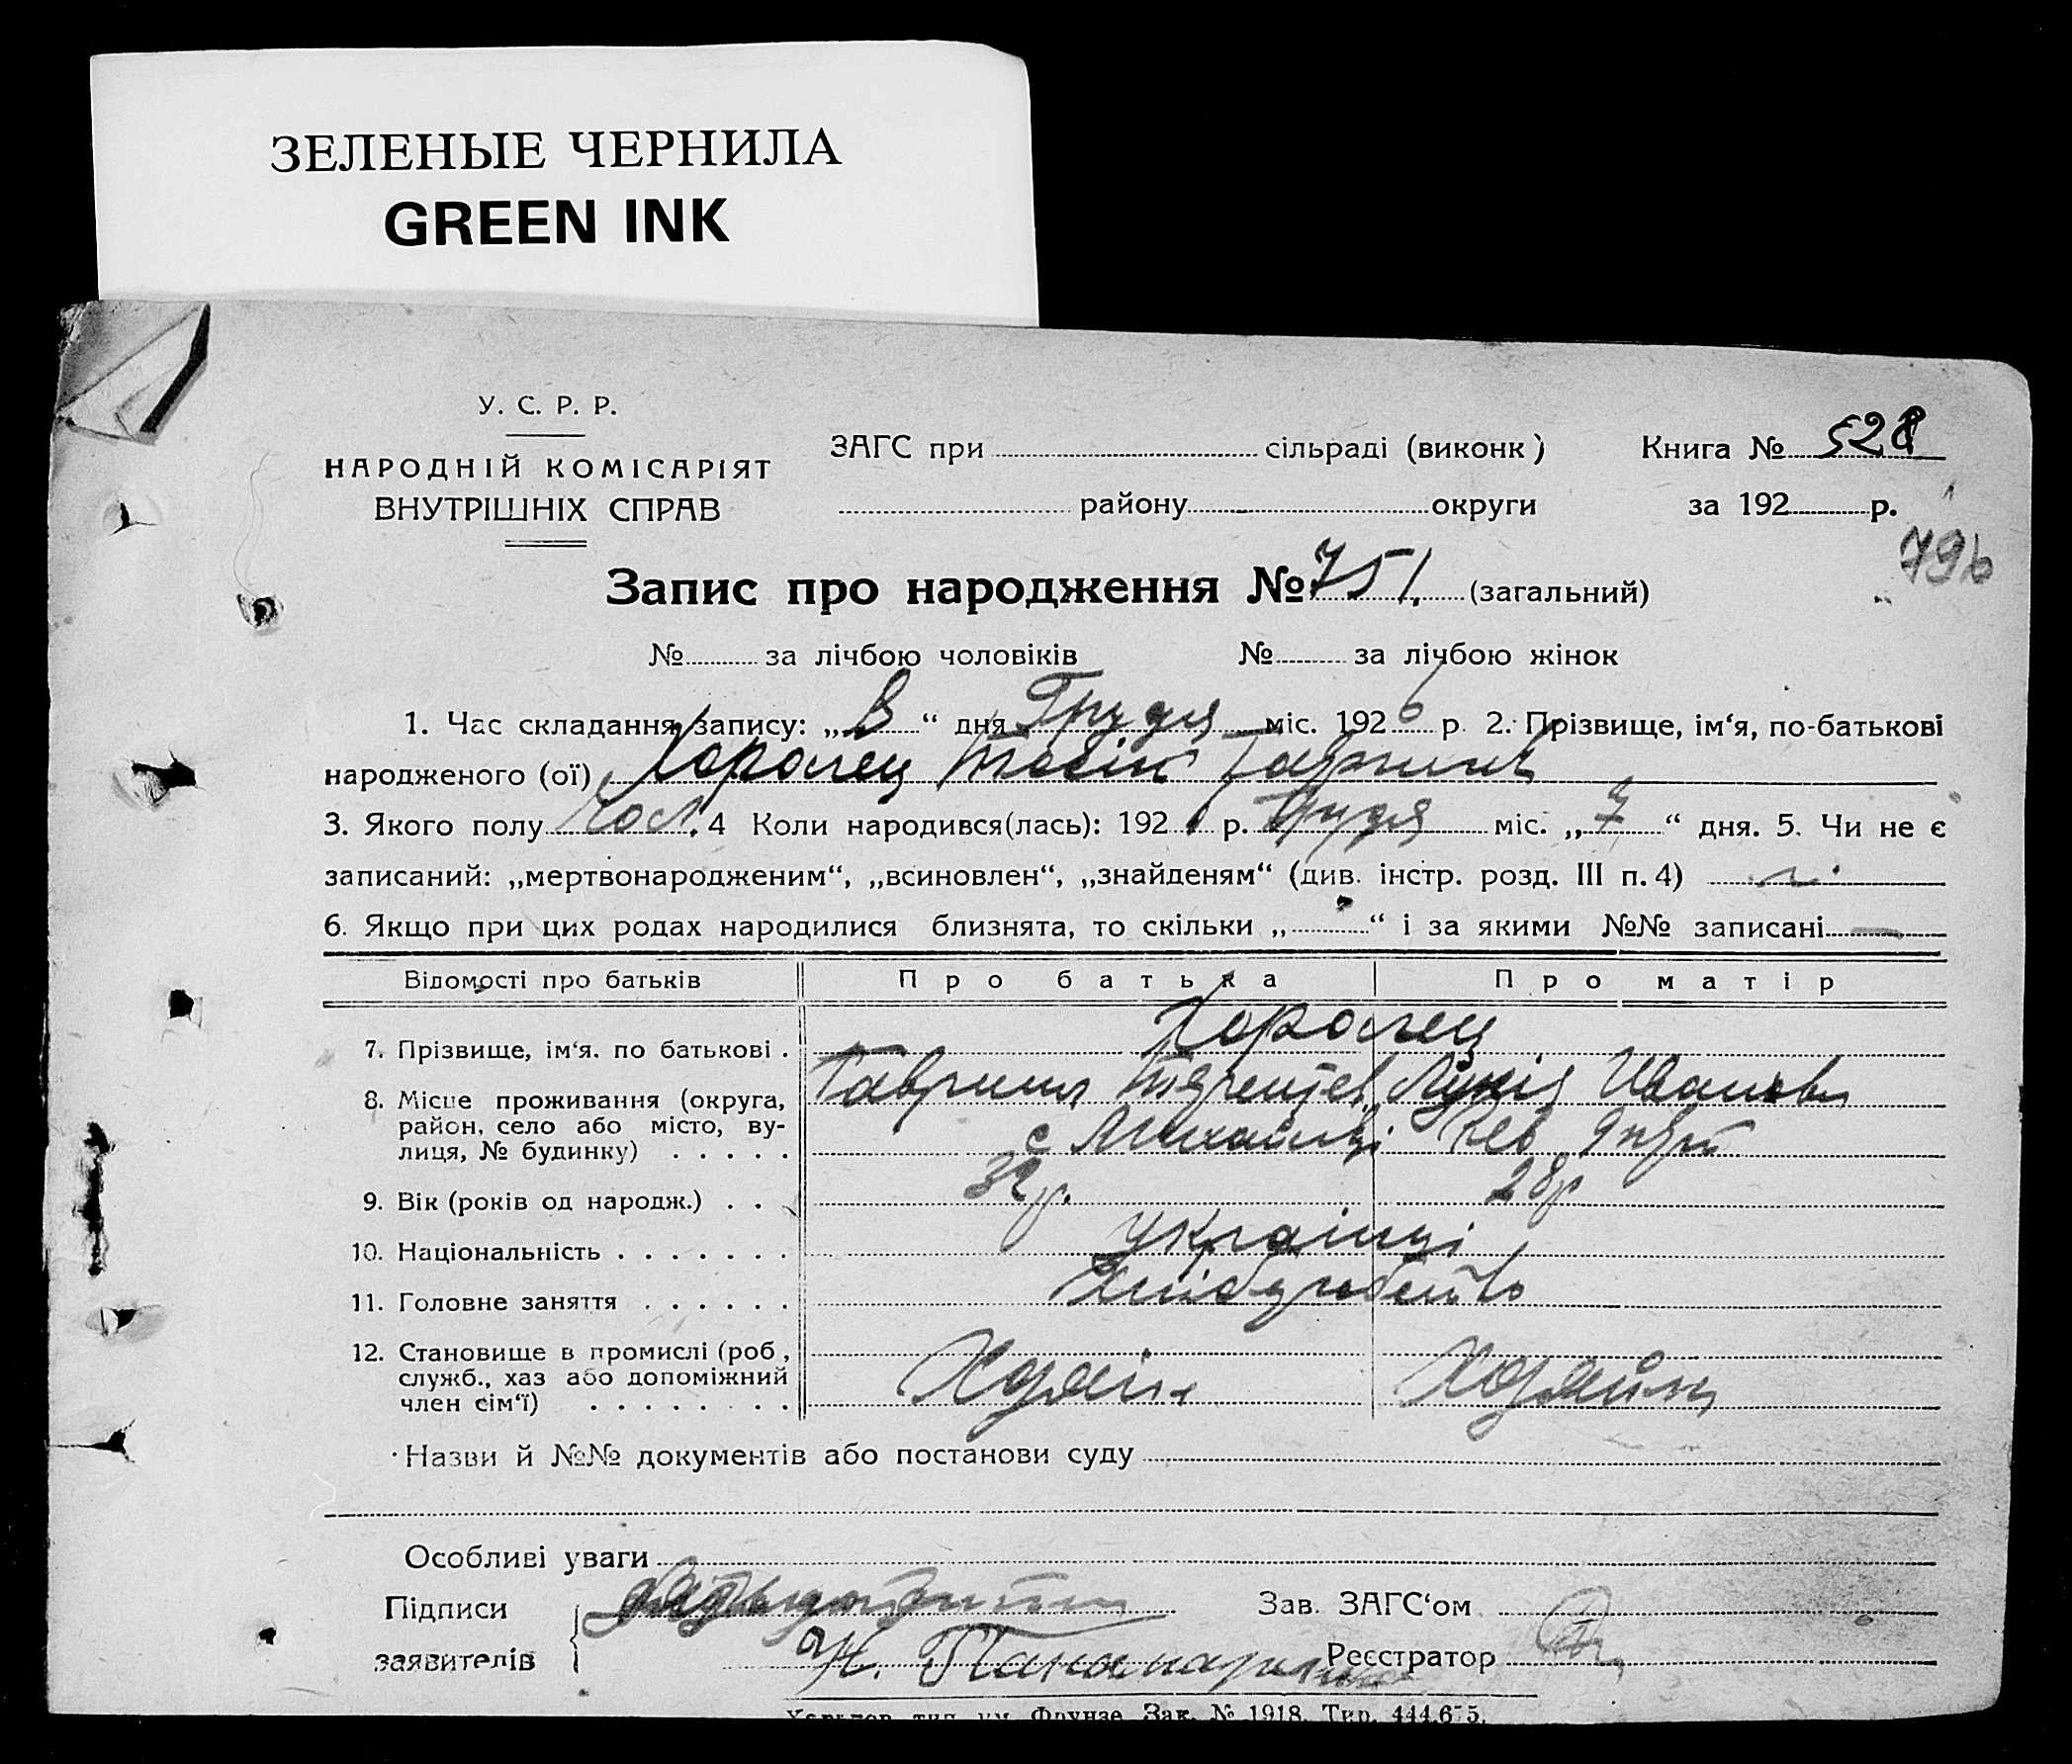 ЗЕЛЕНЫЕ ЧЕРНИЛА
GREEN INK
У. С. Р. Р.
НАРОДНІЙ КОМІСАРІЯТ
ВНУТРІШНІХ СПРАВ
ЗАГС при сільраді (виконк)
району округи
Книга № 528
за 192 р.
796
Запис про народження № 751. (загальний)
№ за лічбою чоловіків № за лічбою жінок
1. Час складання запису: „8“ дня Грудня міс. 1926 р. 2. Прізвище, ім‘я, по-батькові
народженого (ої) Хоролец Гаврилов
3. Якого полу Чол. 4 Коли народився(лась): 192 р. Грудня міс. „7“ дня. 5. Чи не є
записаний: „мертвонародженим“, „всиновлен“, „знайденям“ (див. інстр. розд. III п. 4)
6. Якщо при цих родах народилися близнята, то скільки „ “ і за якими №№ записані —
Відомості про батьків Про батька Про матір
7. Прізвище, ім‘я. по батькові . Хоролец
Гаврило Іванова
8. Місце проживання (округа,
район, село або місто, ву-
лиця, № будинку) . . . . . с
9. Вік (років од народж.) . . 32 р. 28 р
10. Національність . . . . . . . українці
11. Головне заняття . . . . . . Хліборобство
12. Становище в промислі (роб ,
служб., хаз або допоміжний
член сім‘ї) . . . . . . . . Хозяїн Хозяйка
Назви й №№ документів або постанови суду
Особливі уваги
Підписи
заявителів
Зав. ЗАГС‘ом
Реєстратор
Харьков, тип. им. Фрунзе. Зак. № 1918. Тир. 444.675.